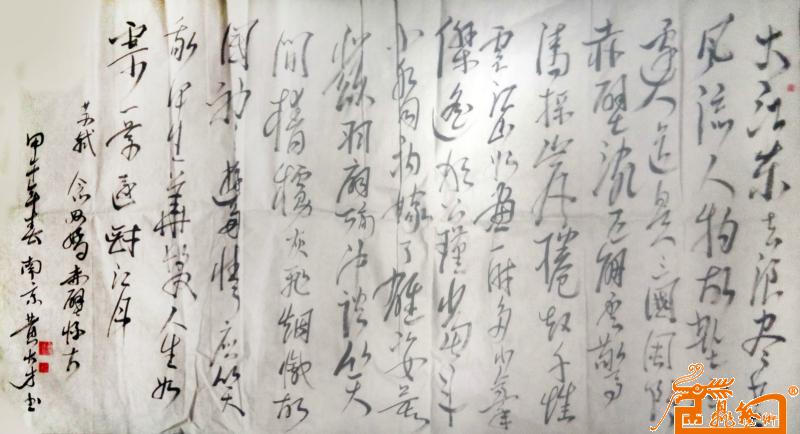 大江东去浪尽千
风流人物故垒西
边人道是三國周郎
赤壁乱石崩雲惊
涛拍岸捲起千堆
雪江山如画一时多少豪
傑遥想公瑾当年
小乔初嫁了雄姿英
發羽扇纶巾谈笑
间樯橹灰飛烟滅故
國神遊多情应笑
我早生華髮人生如
梦一尊還酹江月
苏轼 念奴娇 赤壁怀古
甲午年春南京黄书